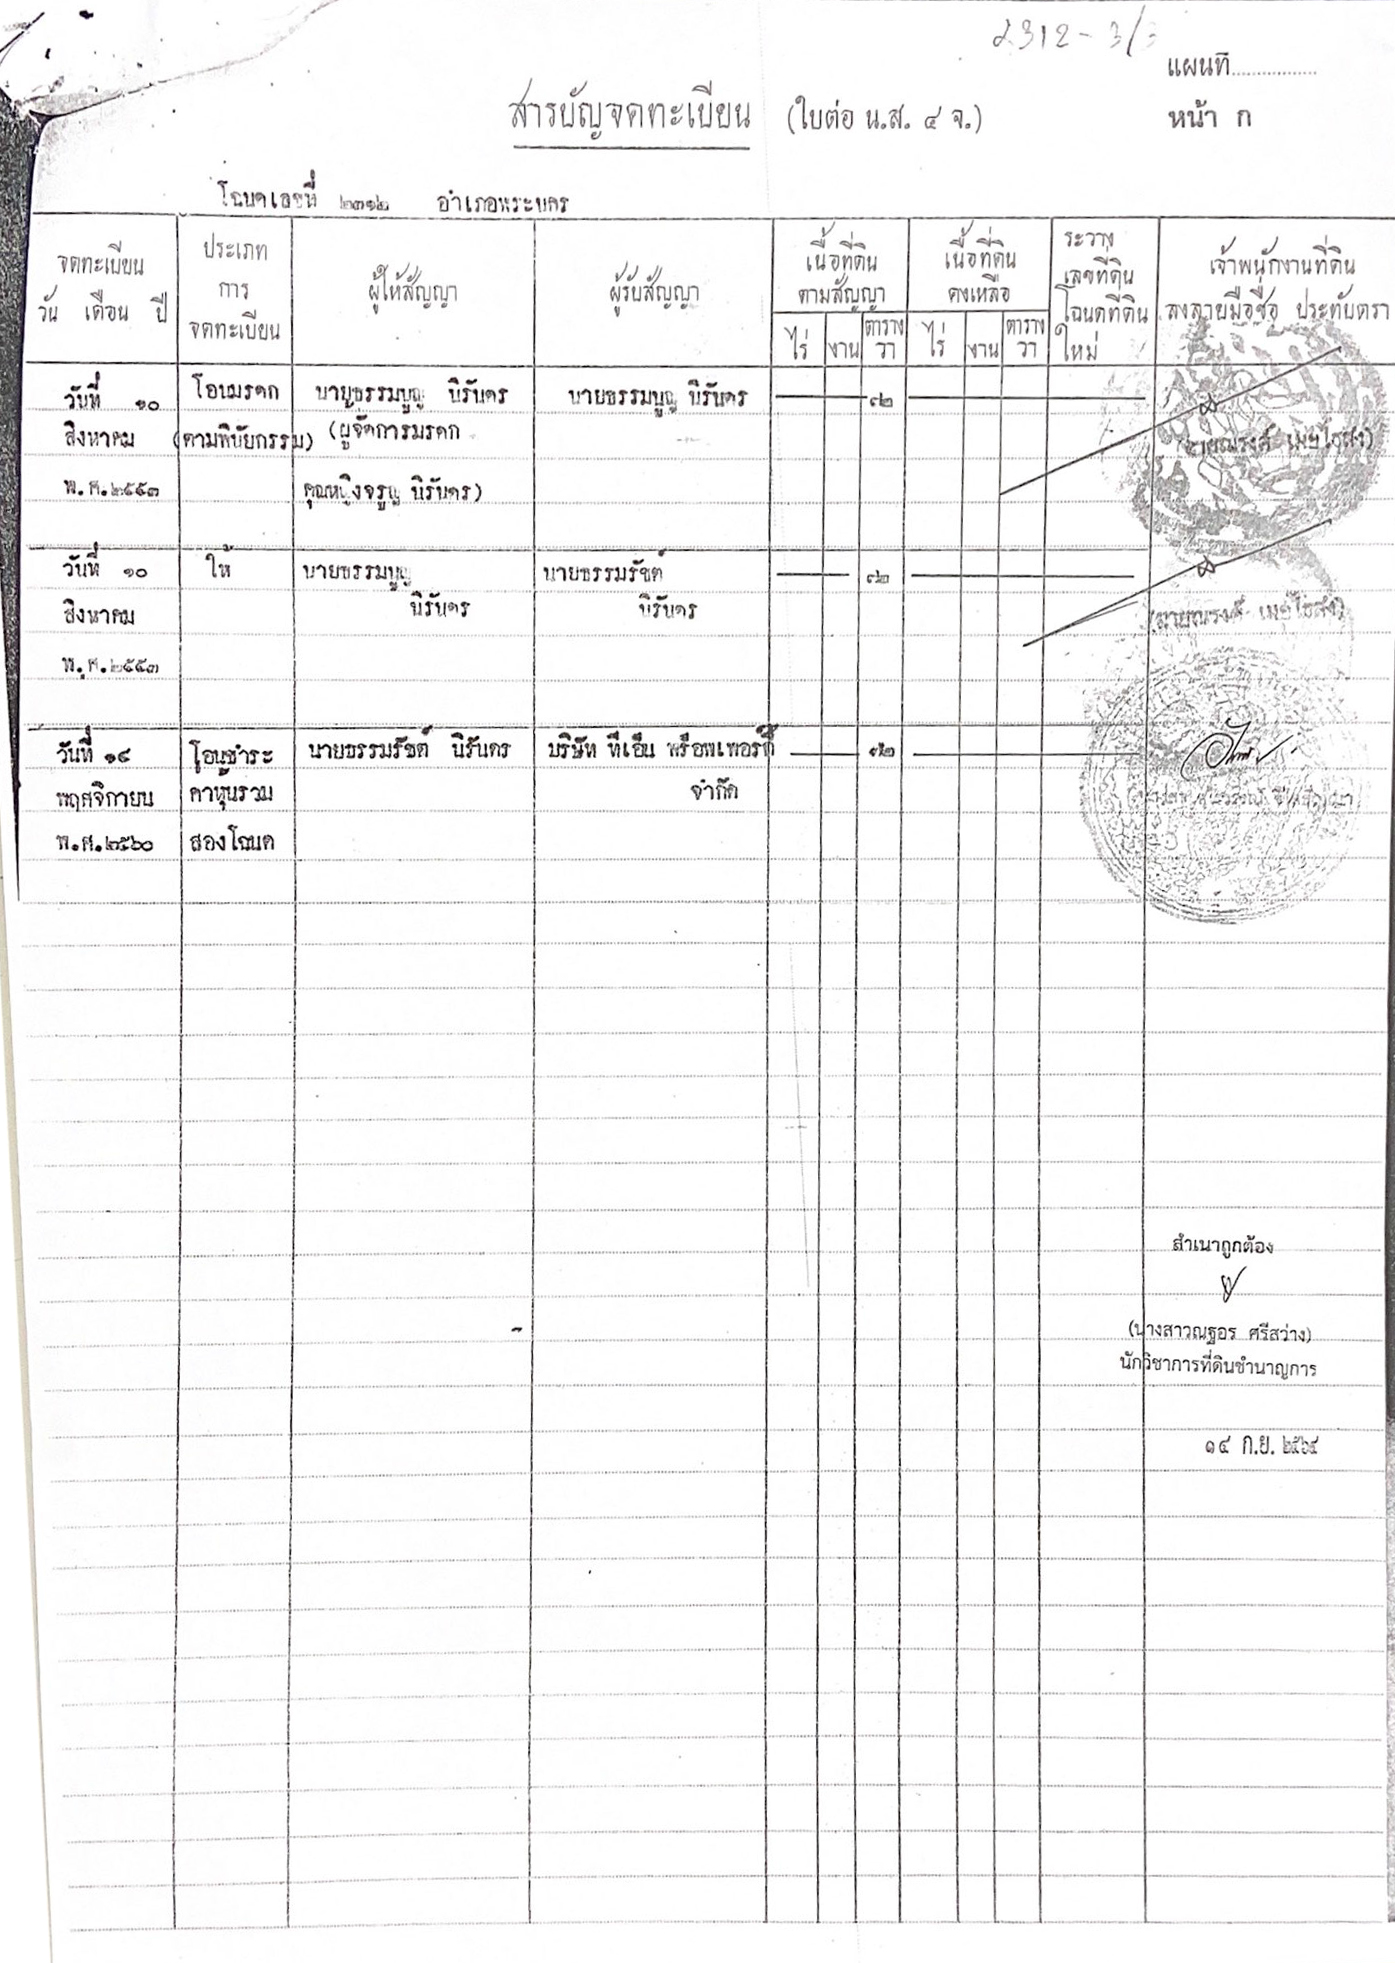 2312-3/3
แผ่นที่................
สารบัญจดทะเบียน (ใบต่อ น.ส. ๔ จ.) หน้า ก
โฉนดเลขที่ ๒๓๑๒ อำเภอพระนคร
จดทะเบียน
วัน เดือน ปี
ประเภท
การ
จดทะเบียน
ผู้ให้สัญญา
ผู้รับสัญญา
เนื้อที่ดิน
ตามสัญญา
ไร่ งาน ตาราง
วา
เนื้อที่ดิน
คงเหลือ
ไร่ งาน ตาราง
วา
ระวาง
เลขที่ดิน
โฉนดที่ดิน
ใหม่
เจ้าพนักงานที่ดิน
ลงลายมือชื่อ ประทับตรา
วันที่ ๑๐ โอนมรดก นายธรรมนูญ นิรันดร นายธรรมนูญ นิรันดร ๗๒
สิงหาคม (ตามพินัยกรรม) (ผู้จัดการมรดก
พ.ศ.๒๕๕๓ คุณหญิงจรูญ นิรันดร)
วันที่ ๑๐ ให้ นายธรรมนูญ นายธรรมรัชต์ ๗๒
สิงหาคม นิรันดร นิรันดร
พ.ศ.๒๕๕๓
วันที่ ๑๔ โอนชำระ นายธรรมรัชต์ นิรันดร บริษัท ทีเอ็น พร็อพเพอร์ตี้ ๗๒
พฤศจิกายน ค่าหุ้นรวม จำกัด
พ.ศ.๒๕๖๐ สองโฉนด
สำเนาถูกต้อง
(นางสาวณฐอร ศรีสว่าง)
นักวิชาการที่ดินชำนาญการ
๑๔ ก.ย. ๒๕๖๔